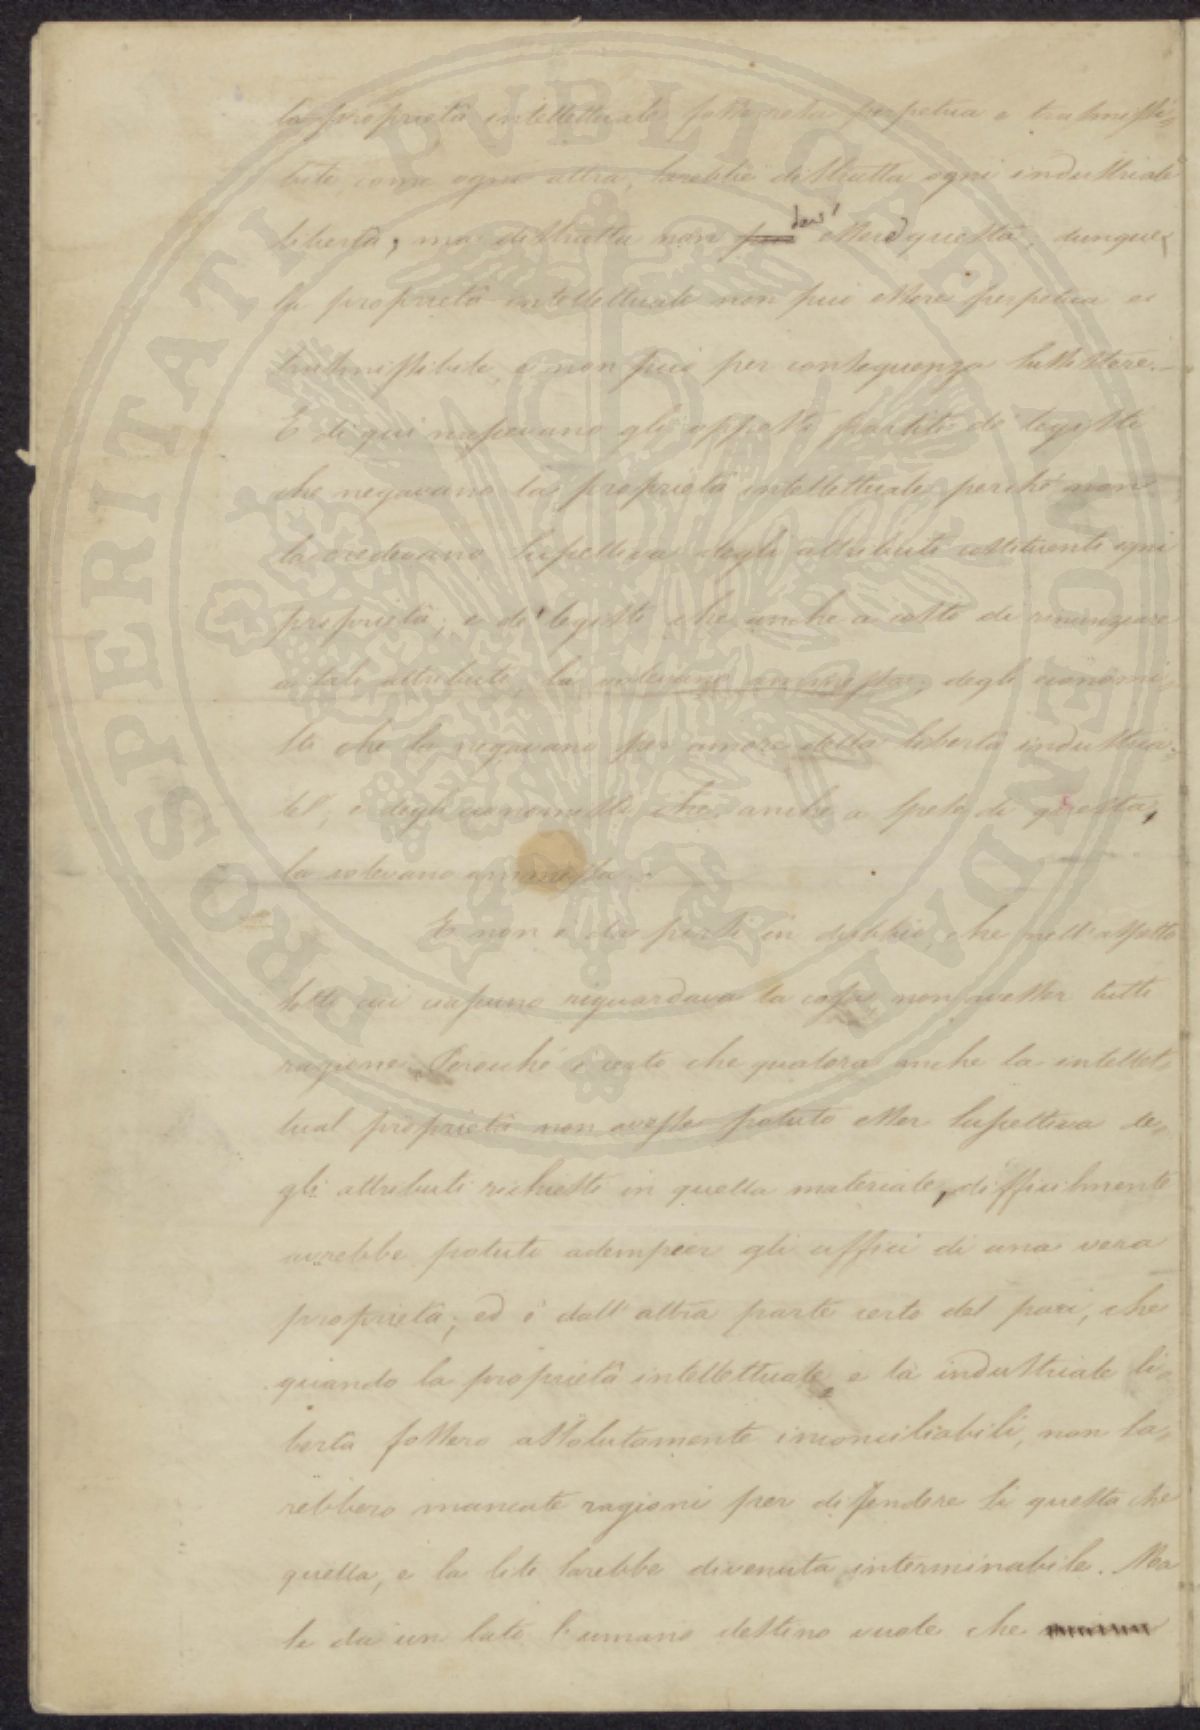 la proprietà intellettuale fosse resa perpetua e trasmissi=
bile come ogni altra, sarebbe distrutta ogni industriale
libertà, ma distrutta non dev' esser questa; dunque
la proprietà intellettuale non può essere perpetua e
trasmissibile, e non può per conseguenza sussistere.—
E di qui nascevano gli opposti partiti de' legisti
che negavano la proprietà intellettuale perché non
la credevano suscettiva degli attributi costituenti ogni
proprietà, e de' legisti che anche a costo di rinunziare
a tali attributi, la volevano ammessa; degli economi=
sti che la negavano per amore della libertà industria=
le, e degli economisti che, anche a spese di questa,
la volevano ammessa.
E non è da porsi in dubbio, che nell'aspetto
sotto cui ciascuno riguardava la cosa, non avesser tutti
ragione. Perocché è certo che qualora anche la intellet=
tual proprietà non avesse potuto esser suscettiva de=
gli attributi richiesti in quella materiale, difficilmente
avrebbe potuto adempier gli uffici di una vera
proprietà; ed è dall'altra parte certo del pari, che
quando la proprietà intellettuale e la industriale li=
bertà fossero assolutamente inconciliabili, non sa=
rebbero mancate ragioni per difendere sì questa che
quella, e la lite sarebbe divenuta interminabile. Ma
se da un lato l'umano destino vuole che
PROSPERITATI PVBLICAE AVGENDAE